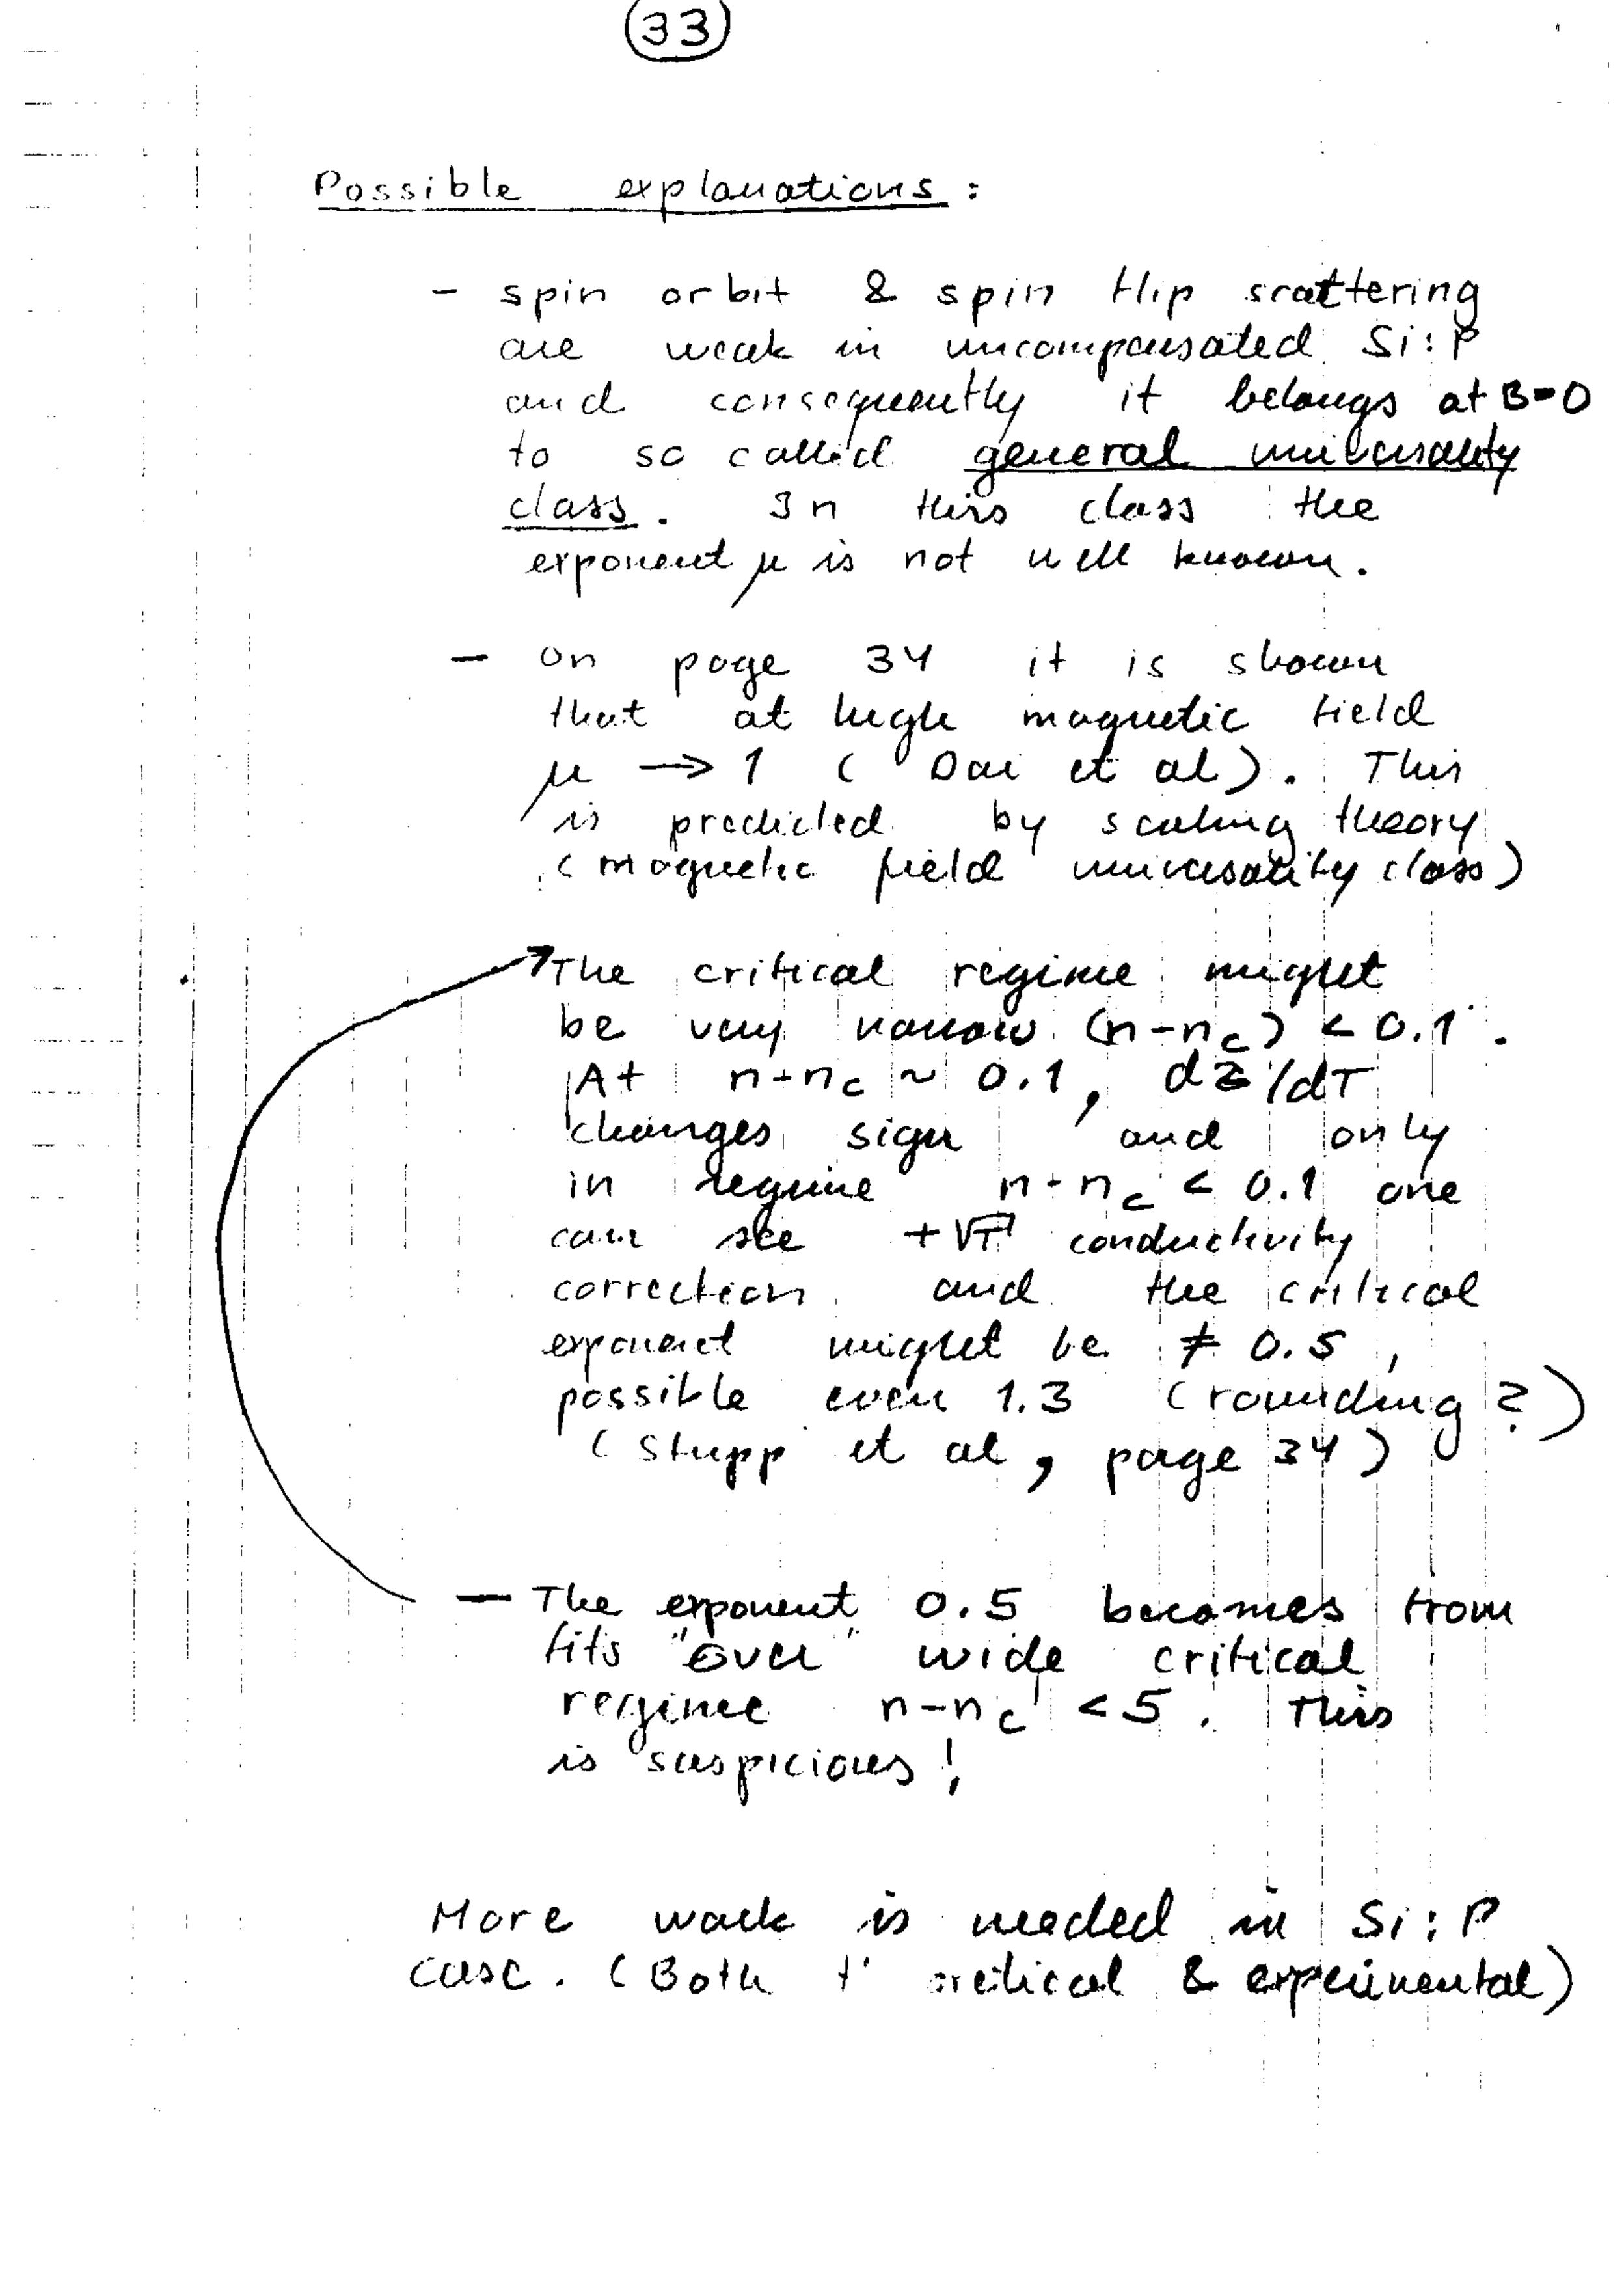 33
Possible explanations:
- spin orbit & spin flip scattering
are weak in uncompensated Si:P
and consequently it belongs at B=0
to so called general universality
class. In this class the
exponent μ is not well known.
- On page 34 it is shown
that at high magnetic field
μ → 1 (Dai et al). This
is predicted by scaling theory
(magnetic field universality class)
The critical regime might
be very narrow (n-nc) < 0.1.
At n-nc ~ 0.1, dσ/dT
changes sign and only
in regime n-nc < 0.1 one
can see +√T conductivity
correction and the critical
exponent might be ≠ 0.5,
possible even 1.3 (rounding?)
(Stupp et al, page 34)
- The exponent 0.5 becomes from
fits "over" wide critical
regime n-nc < 5. This
is suspicious!
More work is needed in Si:P
case. (Both & experimental)